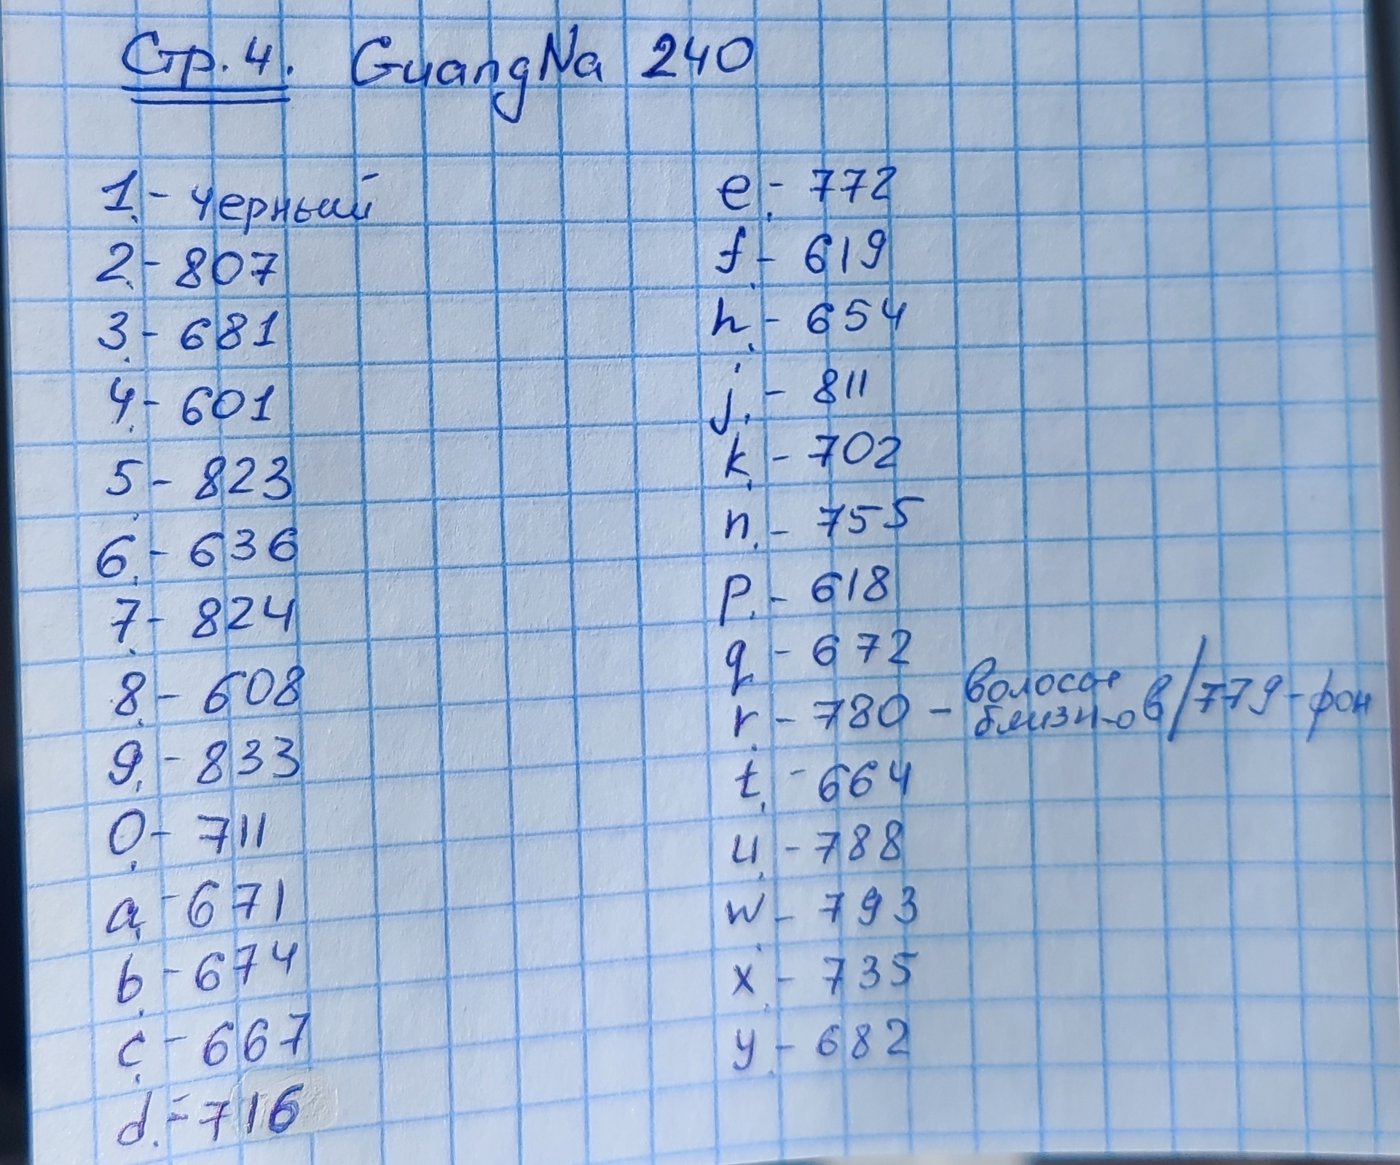 Стр. 4. GuangNa 240
1. - черный
2. - 807
3. - 681
4. - 601
5. - 823
6. - 636
7. - 824
8. - 608
9. - 833
0. - 711
a. - 671
b. - 674
c. - 667
d. - 716
e. - 772
f. - 619
h. - 654
j. - 811
k. - 702
n. - 755
p. - 618
q - 672
r. - 780 - волосы близн-ов / 779 - фон
t. - 664
u. - 788
w. - 793
x. - 735
y. - 682